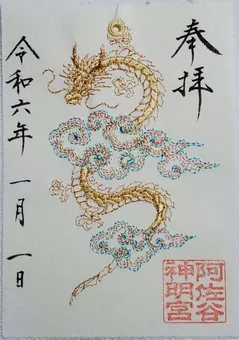 奉拝
阿佐谷
神明宮
令和六年 一月 一日